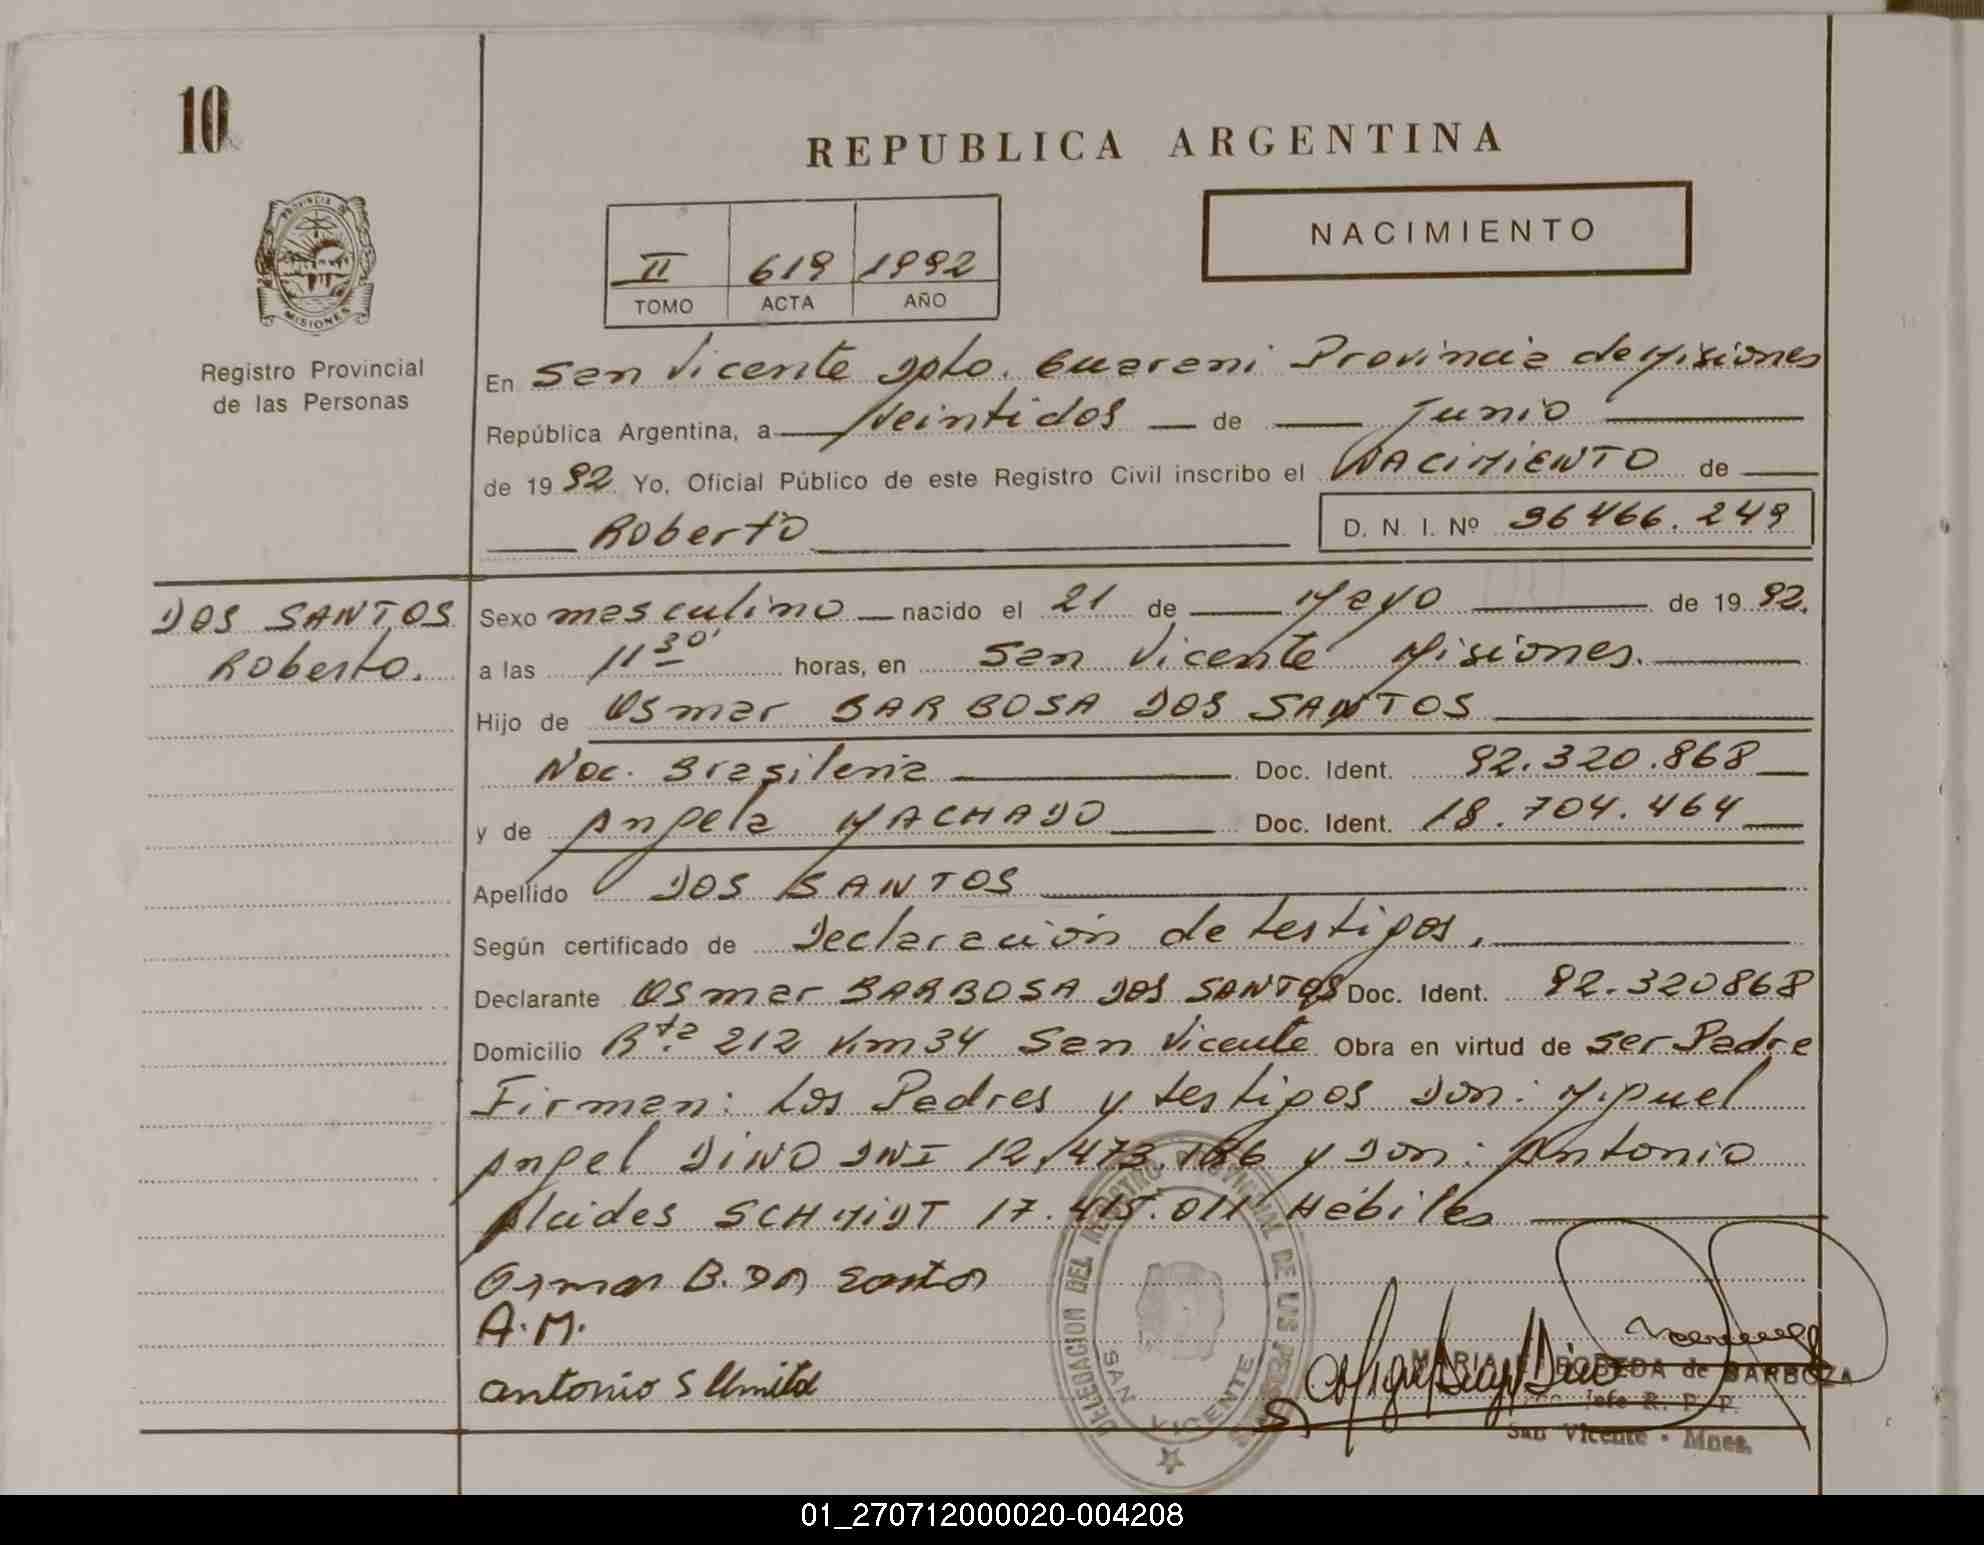 10
REPUBLICA ARGENTINA
NACIMIENTO
II 619 1992
TOMO ACTA AÑO
PROVINCIA DE
MISIONES
Registro Provincial
de las Personas
En San Vicente Dpto. Guarani Provincia de Misiones
República Argentina, a Veintidos de Junio
de 1992. Yo, Oficial Público de este Registro Civil inscribo el NACIMIENTO de
Roberto
D. N. I. Nº 36466.249
DOS SANTOS
Roberto.
Sexo masculino nacido el 21 de Mayo de 1992.
a las 11 30' horas, en San Vicente Misiones.
Hijo de Osmar BARBOSA DOS SANTOS
Nac. Brasilena Doc. Ident. 92.320.868
y de Angela MACHADO Doc. Ident. 18.704.464
Apellido DOS SANTOS
Según certificado de Declaración de testigos.
Declarante Osmar BARBOSA DOS SANTOS Doc. Ident. 92.320868
Domicilio Rta. 212 Km 34 San Vicente Obra en virtud de ser Padre
Firman: Los Padres y testigos Don: Miguel
Angel DINO DNI 12.473.186 y Don: Antonio
Alcides SCHMIDT 17.415.011 Hábiles
Osmar B. Dos Santos
A.M.
antonio
DELEGACION DEL REGISTRO PROVINCIAL DE LAS PERSONAS
SAN VICENTE
Miguel Angel Dino
MARIA de BARBOZA
Jefe R. P. P.
San Vicente - Mnes.
01_270712000020-004208